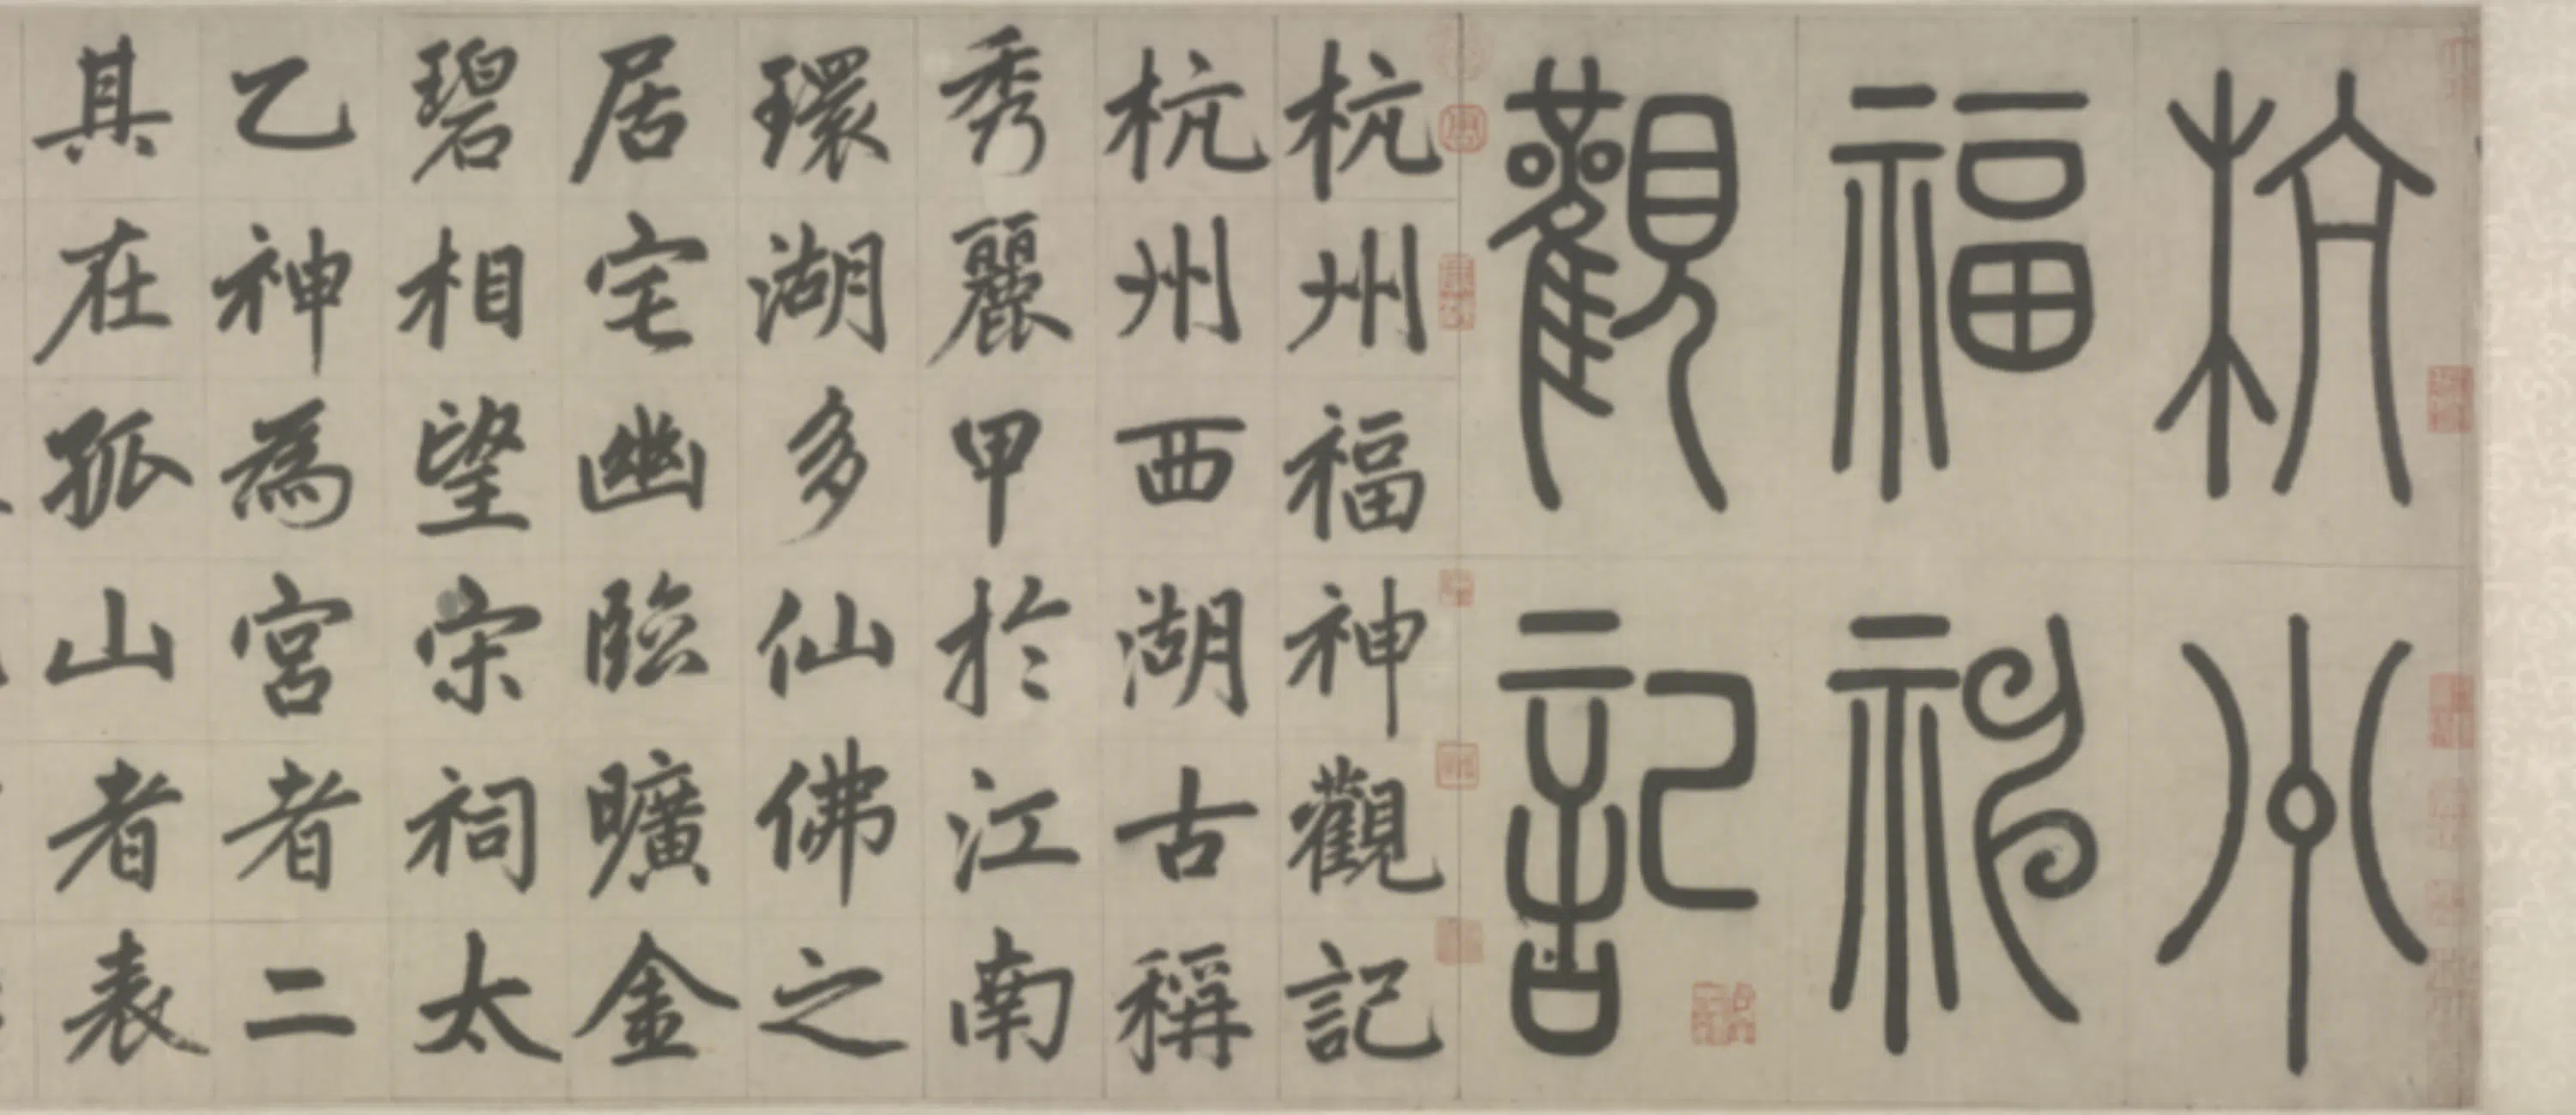 杭州
福神
觀記
杭州福神觀記
杭州西湖古稱
秀麗甲於江南
環湖多仙佛之
居宅幽臨曠金
碧相望宗祠太
乙神為宮者二
其在孤山者表